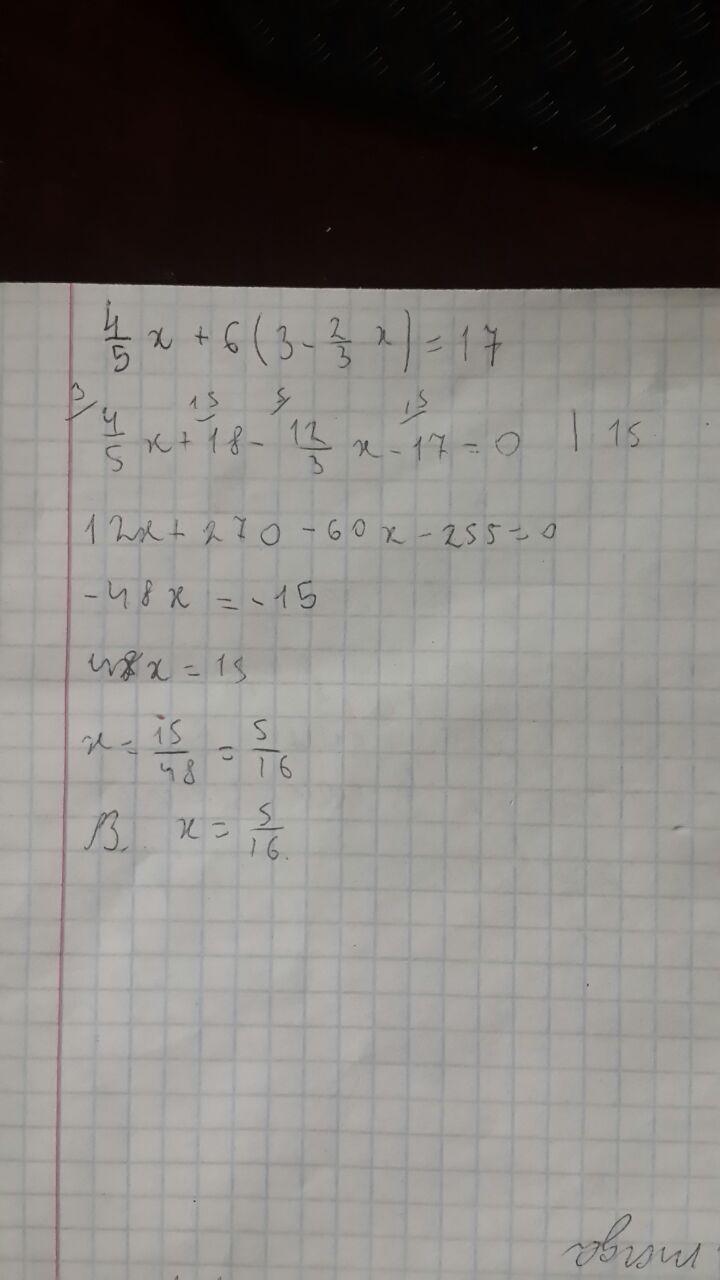 4/5 x + 6(3 - 2/3 x) = 17
3/ 4/5 x + 15/ 18 - 5/ 12/3 x - 15/ 17 = 0 | 15
12x + 270 - 60x - 255 = 0
-48x = -15
48x = 15
x = 15/48 = 5/16
В. x = 5/16.